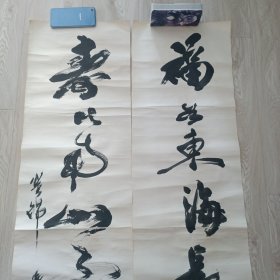 福如東海長
壽比南山不